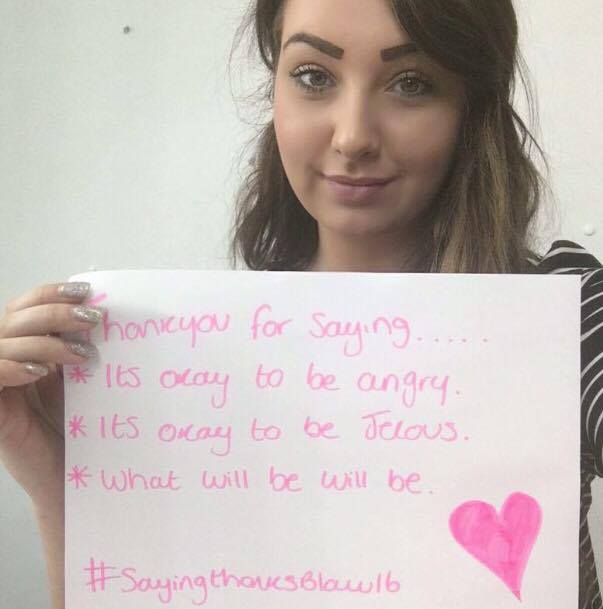 Thankyou for Saying.....
* Its okay to be angry.
* Its okay to be Jelous.
* What will be will be.
#SayingthanksBlaw16